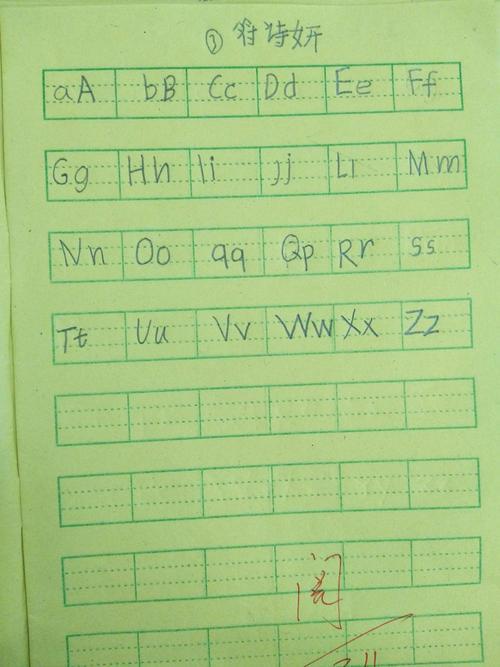 ① 符诗妍
aA bB Cc Dd Ee Ff
Gg Hh Ii Jj Lı Mm
Nn Oo qq Qp Rr Ss
Tt Uu Vv Ww Xx Zz
阅